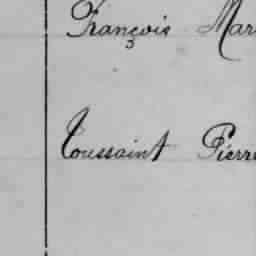 François Mar
Toussaint Pierre